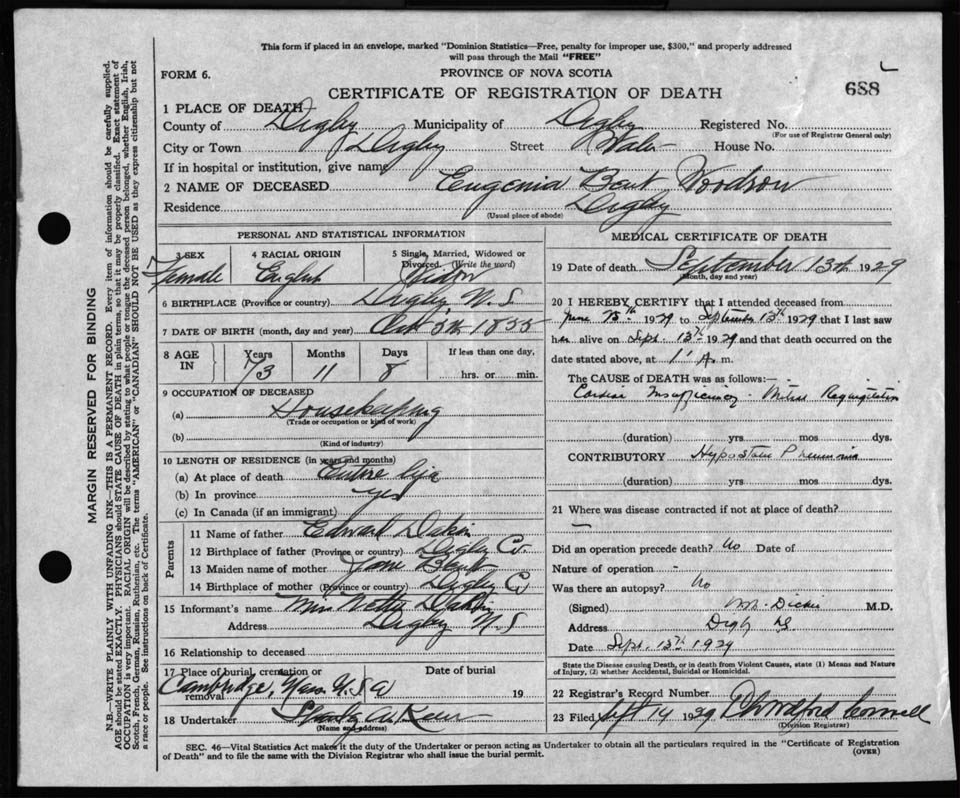 This form if placed in an envelope, marked "Dominion Statistics—Free, penalty for improper use, $300," and properly addressed
will pass through the Mail "FREE"
FORM 6.
PROVINCE OF NOVA SCOTIA
CERTIFICATE OF REGISTRATION OF DEATH
688
1 PLACE OF DEATH
County of Digby Municipality of Digby Registered No.
(For use of Registrar General only)
City or Town Digby Street Water House No.
If in hospital or institution, give name
2 NAME OF DECEASED Eugenia Bent Woodson
Residence Digby
(Usual place of abode)
PERSONAL AND STATISTICAL INFORMATION
3 SEX 4 RACIAL ORIGIN 5 Single, Married, Widowed or
Divorced. (Write the word)
Female English Widow
6 BIRTHPLACE (Province or country) Digby N.S
7 DATE OF BIRTH (month, day and year) Oct 5th 1855
8 AGE IN Years Months Days If less than one day,
73 11 8 hrs. or min.
9 OCCUPATION OF DECEASED
(a) Housekeeping
(Trade or occupation or kind of work)
(b)
(Kind of industry)
10 LENGTH OF RESIDENCE (in years and months)
(a) At place of death Entire life
(b) In province yes
(c) In Canada (if an immigrant)
Parents
11 Name of father Edward Dakin
12 Birthplace of father (Province or country) Digby Co.
13 Maiden name of mother Jane Bent
14 Birthplace of mother (Province or country) Digby Co
15 Informant's name Miss Nettie Dakin
Address Digby N S
16 Relationship to deceased
17 Place of burial, cremation or removal Date of burial
Cambridge, Mass. U S A 19
18 Undertaker
(Name and address)
MEDICAL CERTIFICATE OF DEATH
19 Date of death September 13th 1929
(Month, day and year)
20 I HEREBY CERTIFY that I attended deceased from
June 1929 to September 13th 1929 that I last saw
her alive on Sept. 13th 1929 and that death occurred on the
date stated above, at 1 A. m.
The CAUSE OF DEATH was as follows:
Cardiac Insufficiency - Mitral Regurgitation
(duration) yrs. mos dys.
CONTRIBUTORY Hypostatic Pneumonia
(duration) yrs. mos. dys.
21 Where was disease contracted if not at place of death?
Did an operation precede death? No Date of
Nature of operation -
Was there an autopsy? No
(Signed) Dickie M.D.
Address Digby NS
Date Sept. 13th 1929
State the Disease causing Death, or in death from Violent Causes, state (1) Means and Nature
of Injury, (2) whether Accidental, Suicidal or Homicidal.
22 Registrar's Record Number
23 Filed Sept 14 1929
(Division Registrar)
SEC. 46—Vital Statistics Act makes it the duty of the Undertaker or person acting as Undertaker to obtain all the particulars required in the "Certificate of Registration
of Death" and to file the same with the Division Registrar who shall issue the burial permit.
(OVER)
MARGIN RESERVED FOR BINDING
N.B.—WRITE PLAINLY WITH UNFADING INK—THIS IS A PERMANENT RECORD. Every item of information should be carefully supplied.
AGE should be stated EXACTLY. PHYSICIANS should STATE CAUSE OF DEATH in plain terms, so that it may be properly classified. Exact statement of
OCCUPATION is very important. RACIAL ORIGIN will be described by stating to what people or tongue the deceased person belonged, whether English, Irish,
Scotch, French, German, Russian, Ruthenian, etc. The terms "AMERICAN" or "CANADIAN" SHOULD NOT BE USED as they express citizenship but not
a race or people. See instructions on back of Certificate.